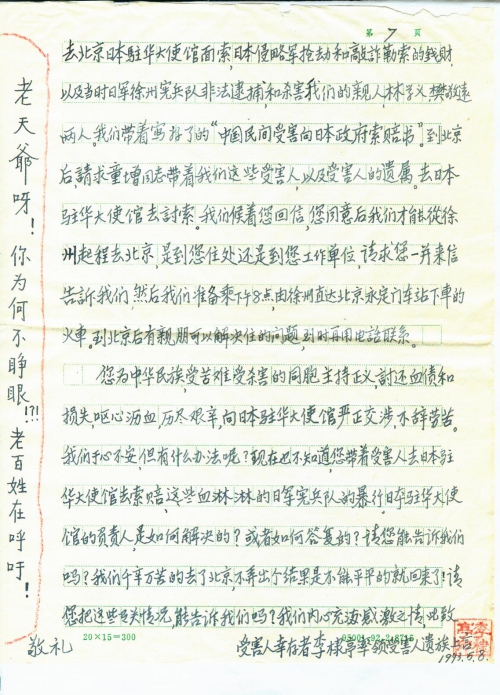 第 7 页
去北京日本驻华大使馆面索,日本侵略军抢劫和敲詐勒索的钱财,
以及当时日军徐州宪兵队非法逮捕和杀害我们的親人林学义,樊敬遠
两人。我们带着写好了的“中国民间受害向日本政府索赔书”。到北京
后,請求童増同志带着我们这些受害人,以及受害人的遗属。去日本
驻华大使馆去討索。我们候着您回信,您同意后我们才能從徐
州起程去北京,是到您住处还是到您工作单位,请求您一并来信
告訴我们,然后我们准备乘下午8点,由徐州直达北京永定门车站下車的
火車。到北京后有親朋可以解决住的问题,到时再用电話联系。
您为中华民族受苦难受杀害的同胞主持正义,討还血债和
损失,呕心沥血,历尽艰辛,向日本驻华大使馆严正交涉,不辞劳苦。
我们于心不安,但有什么办法呢?现在也不知道您带着受害人去日本驻
华大使馆去索赔,这些血淋淋的日军宪兵队的暴行日本驻华大使
馆的负责人是如何解决的?或者如何答复的?请您能告诉我们
吗?我们千辛万苦的去了北京,不弄出个结果是不能平平的就回来了!请
您把这些具大情况,能告诉我们吗?我们内心充满感激之情,此致
敬礼
受害人幸存者李棣亭率领受害人遗族上言
1993.5.8.
20×15=300
老天爺呀!你为何不睁眼!?!老百姓在呼吁!